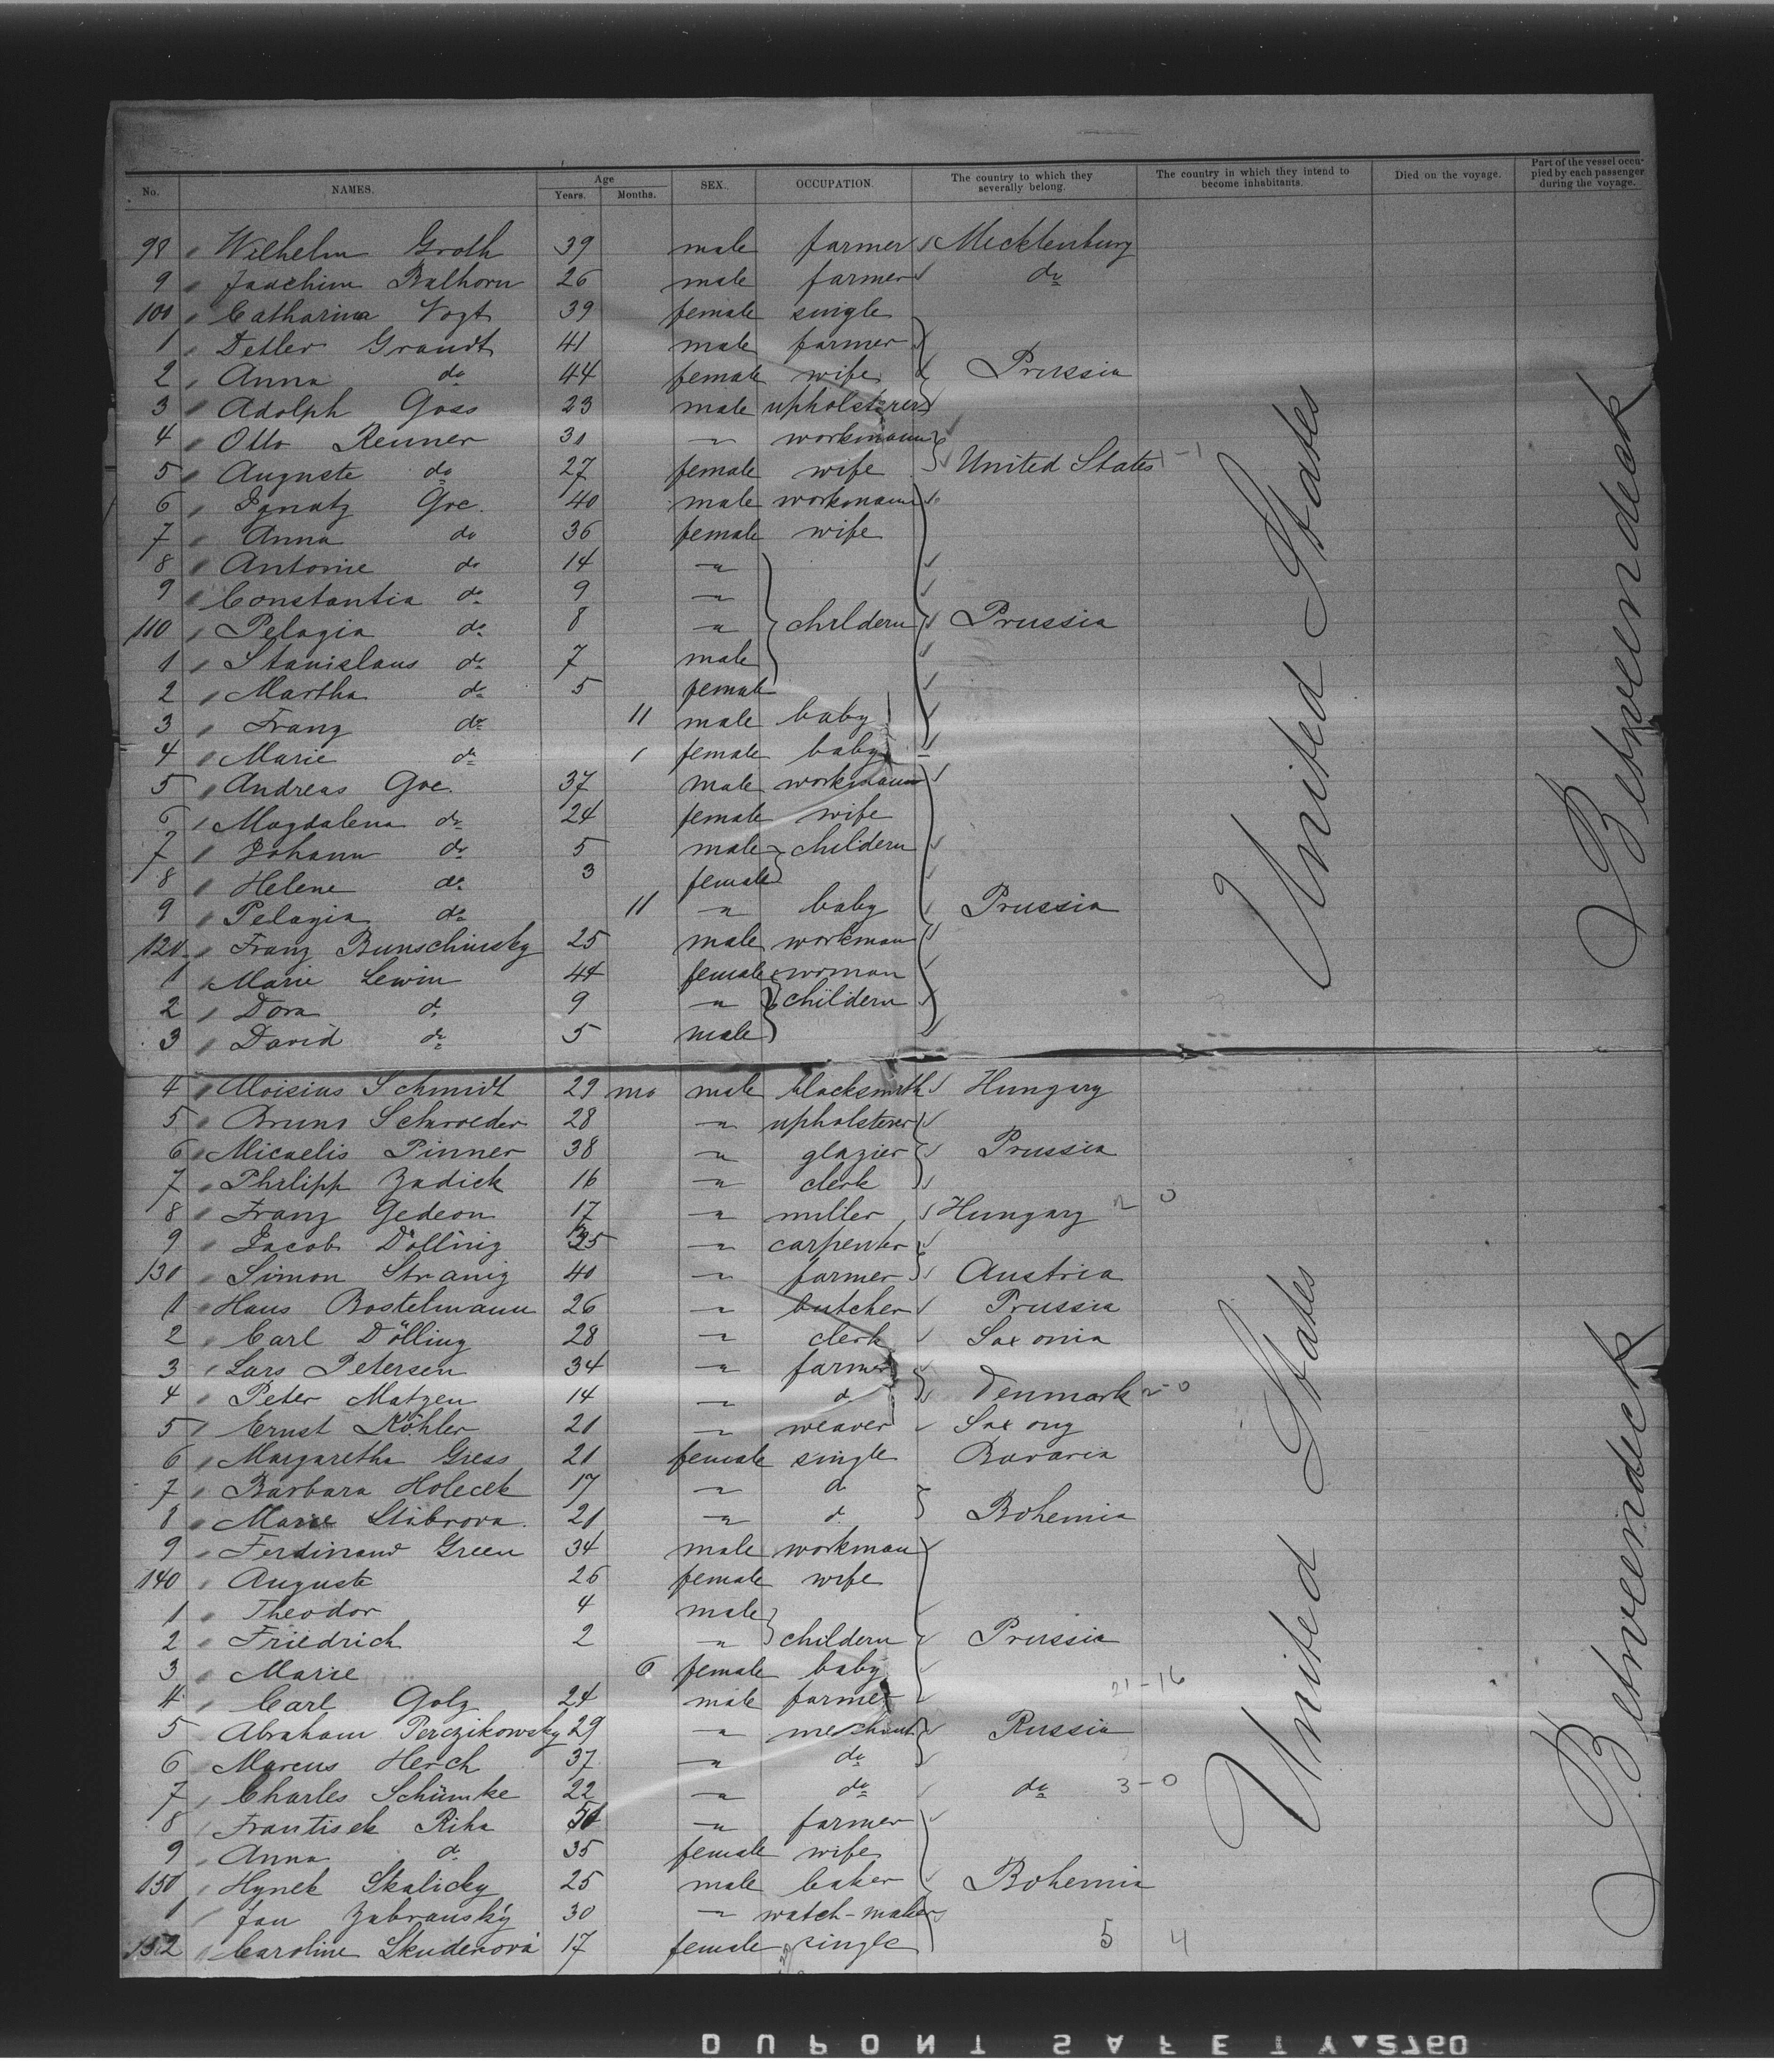 No. NAMES. Age Years. Months. SEX. OCCUPATION. The country to which they severally belong. The country in which they intend to become inhabitants. Died on the voyage. Part of the vessel occupied by each passenger during the voyage.
98 " Wilhelm Groth 39 male farmer Mecklenburg
9 " Joachim Balhorn 26 male farmer do
100 " Catharina Vogt 39 female single
1 " Detler Grandt 41 male farmer
2 " Anna do 44 female wife Prussia
3 " Adolph Goss 23 male upholsterer
4 " Otto Renner 31 " workmann
5 " Auguste do 27 female wife United States 1-1
6 " Ignatz Goc. 40 male workmann
7 " Anna do 36 female wife
8 " Antonie do 14 "
9 " Constantia do 9 "
110 " Pelagia do 8 " childern Prussia
1 " Stanislaus do 7 male
2 " Martha do 5 female
3 " Franz do 11 male baby
4 " Marie do 1 female baby
5 " Andreas Goc. 37 male workmann
6 " Magdalena do 24 female wife
7 " Johann do 5 male childern
8 " Helene do 3 female
9 " Pelagia do 11 " baby Prussia
120 " Franz Bunschinsky 25 male workman
1 " Marie Lewin 44 female woman
2 " Dora do 9 " childern
3 " David do 5 male
United States
Betweendeck
4 " Aloisius Schmidt 29 mo male blacksmith Hungary
5 " Bruno Schroeder 28 " upholsterer
6 " Micaelis Pinner 38 " glazier Prussia
7 " Philipp Zadick 16 " clerk
8 " Franz Gedeon 17 " miller Hungary 2 0
9 " Jacob Dölling 35 " carpenter
130 " Simon Stranig 40 " farmer Austria
1 " Hans Bostelmann 26 " butcher Prussia
2 " Carl Dölling 28 " clerk Saxonia
3 " Lars Petersen 34 " farmer
4 " Peter Matzen 14 " d Denmark 2-0
5 " Ernst Köhler 21 " weaver Saxony
6 " Margaretha Gress 21 female single Bavaria
7 " Barbara Holecek 17 " d
8 " Marie Stibrova 21 " d Bohemia
9 " Ferdinand Green 34 male workman
140 " Auguste 26 female wife
1 " Theodor 4 male
2 " Friedrich 2 " childern Prussia
3 " Marie 6 female baby
4 " Carl Golz 24 male farmer 21-16
5 Abraham Perczikowsky 29 " merchant Russia
6 " Marcus Herch 37 " do
7 " Charles Schümke 22 " do do 3-0
8 " Frantisek Riha 50 " farmer
9 " Anna d 35 female wife
150 " Hynek Skalicky 25 male baker Bohemia
1 " Jan Zabranský 30 " watch-maker
152 " Caroline Skudenová 17 female single 5 4
United States
Betweendeck
DUPONT SAFETY 2760